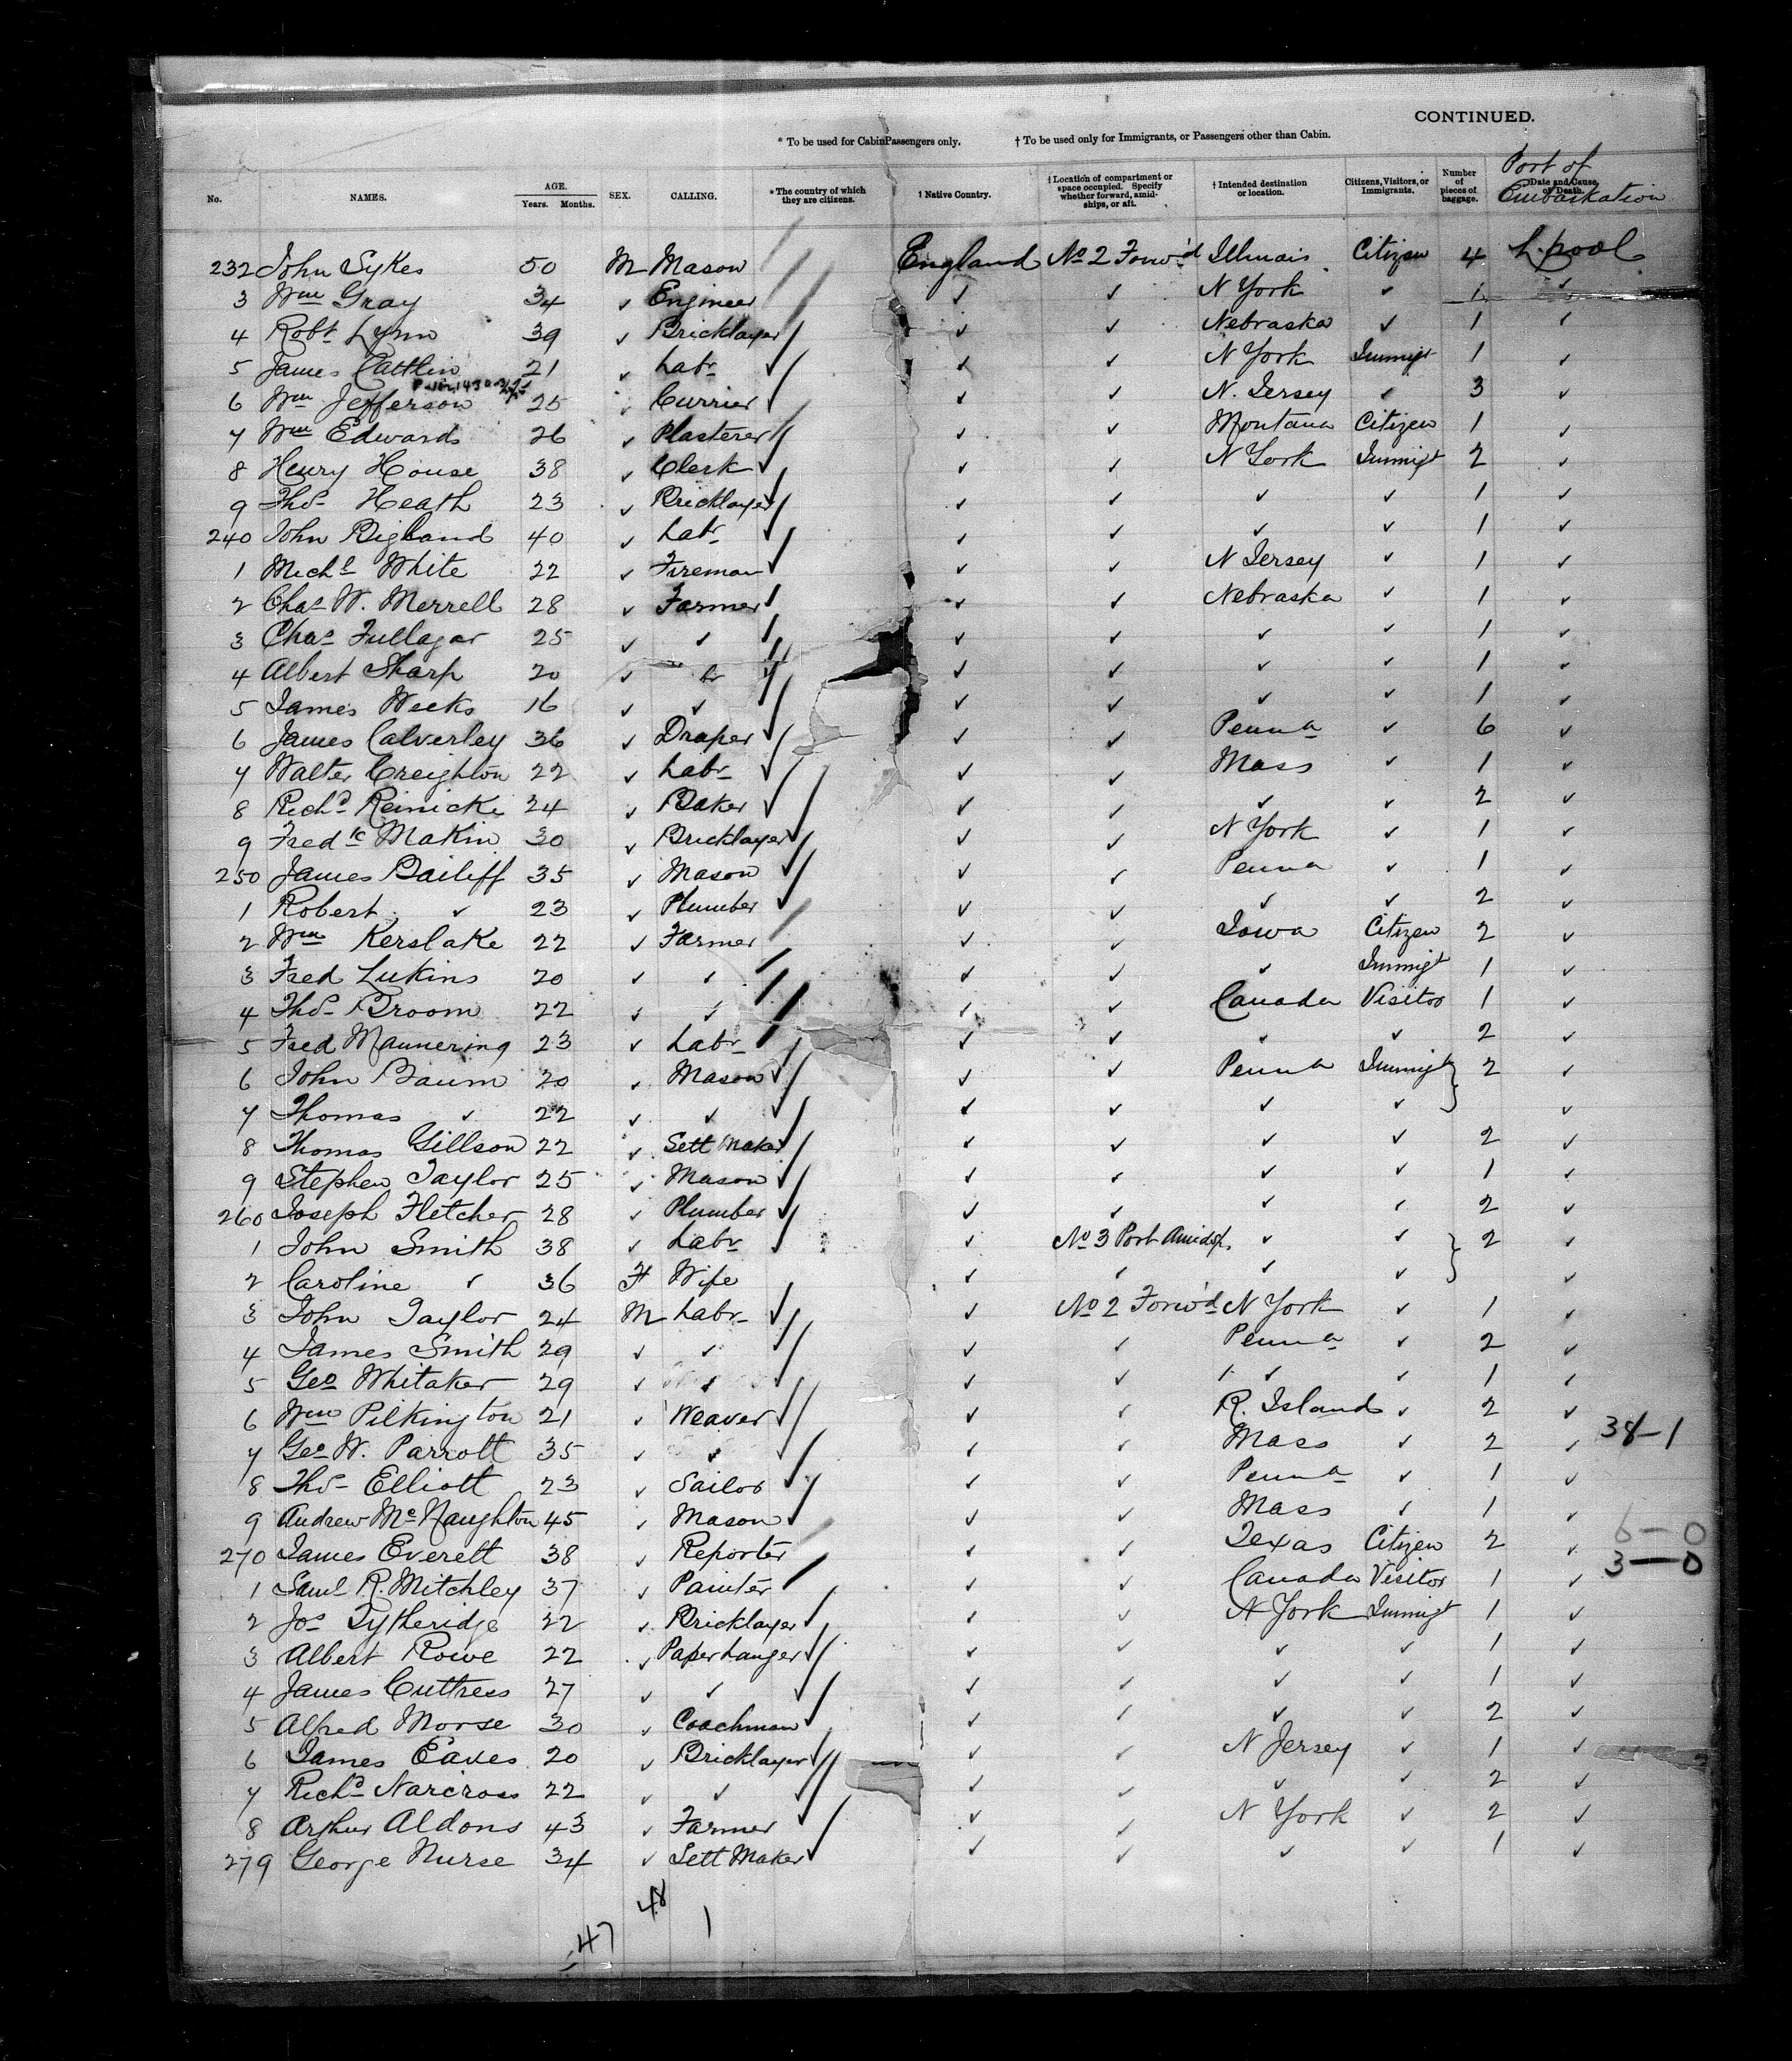 CONTINUED.
* To be used for Cabin Passengers only. † To be used only for Immigrants, or Passengers other than Cabin.
Port of Embarkation
No. NAMES. AGE. Years. Months. SEX. CALLING. * The country of which they are citizens. † Native Country. † Location of compartment or space occupied. Specify whether forward, amidships, or aft. † Intended destination or location. Citizens, Visitors, or Immigrants. Number of pieces of baggage. Date and Cause of Death.
232 John Sykes 50 M Mason England No 2 Forw'd Illinois Citizen 4 L.pool
3 Wm Gray 34 ✓ Engineer ✓ ✓ N York ✓ 1 ✓
4 Robt Lynn 39 ✓ Bricklayer ✓ ✓ Nebraska ✓ 1 ✓
5 James Cattlin 21 ✓ Labr ✓ ✓ N York Immigt 1 ✓
6 Wm Jefferson 25 ✓ Currier ✓ ✓ N. Jersey ✓ 3 ✓
7 Wm Edwards 26 ✓ Plasterer ✓ ✓ Montana Citizen 1 ✓
8 Henry House 38 ✓ Clerk ✓ ✓ N York Immigt 2 ✓
9 Thos Heath 23 ✓ Bricklayer ✓ ✓ ✓ ✓ 1 ✓
240 John Bigland 40 ✓ Labr ✓ ✓ ✓ ✓ 1 ✓
1 Michl White 22 ✓ Fireman ✓ ✓ N Jersey ✓ 1 ✓
2 Chas W. Merrell 28 ✓ Farmer ✓ ✓ Nebraska ✓ 1 ✓
3 Chas Fullagar 25 ✓ ✓ ✓ ✓ ✓ ✓ 1 ✓
4 Albert Sharp 20 ✓ ✓ ✓ ✓ ✓ 1 ✓
5 James Weeks 16 ✓ ✓ ✓ ✓ ✓ ✓ 1 ✓
6 James Calverley 36 ✓ Draper ✓ ✓ Penna ✓ 6 ✓
7 Walter Creighton 22 ✓ Labr ✓ ✓ Mass ✓ 1 ✓
8 Richd Reinicke 24 ✓ Baker ✓ ✓ ✓ ✓ 2 ✓
9 Fredk Makin 30 ✓ Bricklayer ✓ ✓ N York ✓ 1 ✓
250 James Bailiff 35 ✓ Mason ✓ ✓ Penna ✓ 1 ✓
1 Robert ✓ 23 ✓ Plumber ✓ ✓ ✓ ✓ 2 ✓
2 Wm Kerslake 22 ✓ Farmer ✓ ✓ Iowa Citizen 2 ✓
3 Fred Lukins 20 ✓ ✓ ✓ ✓ ✓ Immigt 1 ✓
4 Thos Broom 22 ✓ ✓ ✓ ✓ Canada Visitor 1 ✓
5 Fred Mannering 23 ✓ Labr ✓ ✓ ✓ ✓ 2 ✓
6 John Baum 20 ✓ Mason ✓ ✓ Penna Immigt } 2 ✓
7 Thomas ✓ 22 ✓ ✓ ✓ ✓ ✓ ✓ ✓
8 Thomas Gillson 22 ✓ Sett Maker ✓ ✓ ✓ ✓ 2 ✓
9 Stephen Taylor 25 ✓ Mason ✓ ✓ ✓ ✓ 1 ✓
260 Joseph Fletcher 28 ✓ Plumber ✓ ✓ ✓ ✓ 2 ✓
1 John Smith 38 ✓ Labr ✓ No 3 Port Amidsps ✓ ✓ } 2 ✓
2 Caroline ✓ 36 F Wife ✓ ✓ ✓ ✓ ✓
3 John Taylor 24 M Labr ✓ No 2 Forw'd N York ✓ 1 ✓
4 James Smith 29 ✓ ✓ ✓ ✓ Penna ✓ 2 ✓
5 Geo Whitaker 29 ✓ ✓ ✓ ✓ ✓ ✓ 1 ✓
6 Wm Pilkington 21 ✓ Weaver ✓ ✓ R. Island ✓ 2 ✓
7 Geo W. Parrott 35 ✓ ✓ ✓ ✓ Mass ✓ 2 ✓ 38-1
8 Thos Elliott 23 ✓ Sailor ✓ ✓ Penna ✓ 1 ✓
9 Andrew McNaughton 45 ✓ Mason ✓ ✓ Mass ✓ 1 ✓
6-0
270 James Everett 38 ✓ Reporter ✓ ✓ Texas Citizen 2 ✓
3-0
1 Saml R. Mitchley 37 ✓ Painter ✓ ✓ Canada Visitor 1 ✓
2 Jos Tytheridge 22 ✓ Bricklayer ✓ ✓ N York Immigt 1 ✓
3 Albert Rowe 22 ✓ Paperhanger ✓ ✓ ✓ ✓ 1 ✓
4 James Cuttress 27 ✓ ✓ ✓ ✓ ✓ ✓ 1 ✓
5 Alfred Morse 30 ✓ Coachman ✓ ✓ ✓ ✓ 2 ✓
6 James Eaves 20 ✓ Bricklayer ✓ ✓ N Jersey ✓ 1 ✓
7 Richd Narcross 22 ✓ ✓ ✓ ✓ ✓ ✓ 2 ✓
8 Arthur Aldons 43 ✓ Farmer ✓ ✓ N York ✓ 2 ✓
279 George Nurse 34 ✓ Sett Maker ✓ ✓ ✓ ✓ 1 ✓
48
47 1